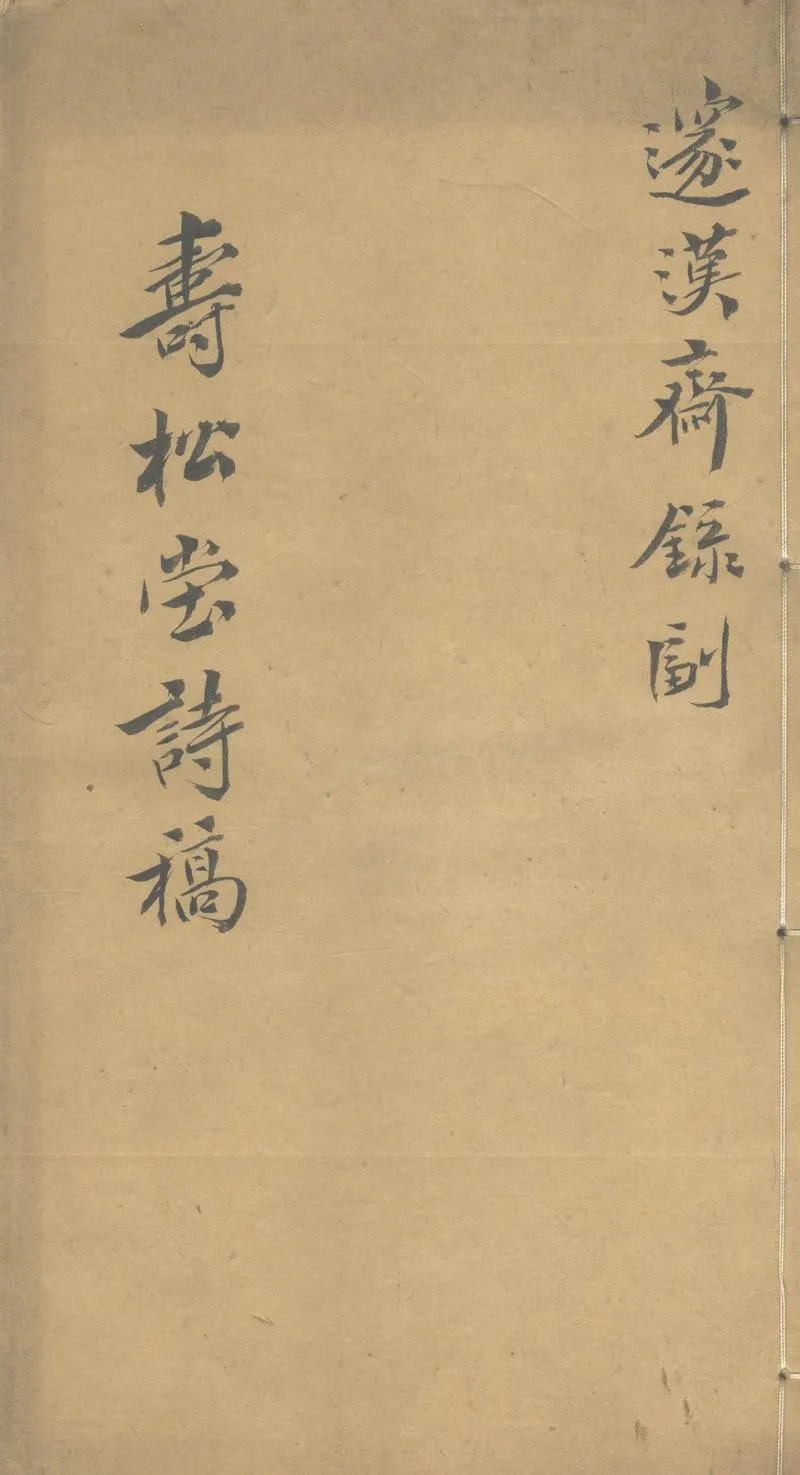 邃漢齋錄副
壽松堂詩稿